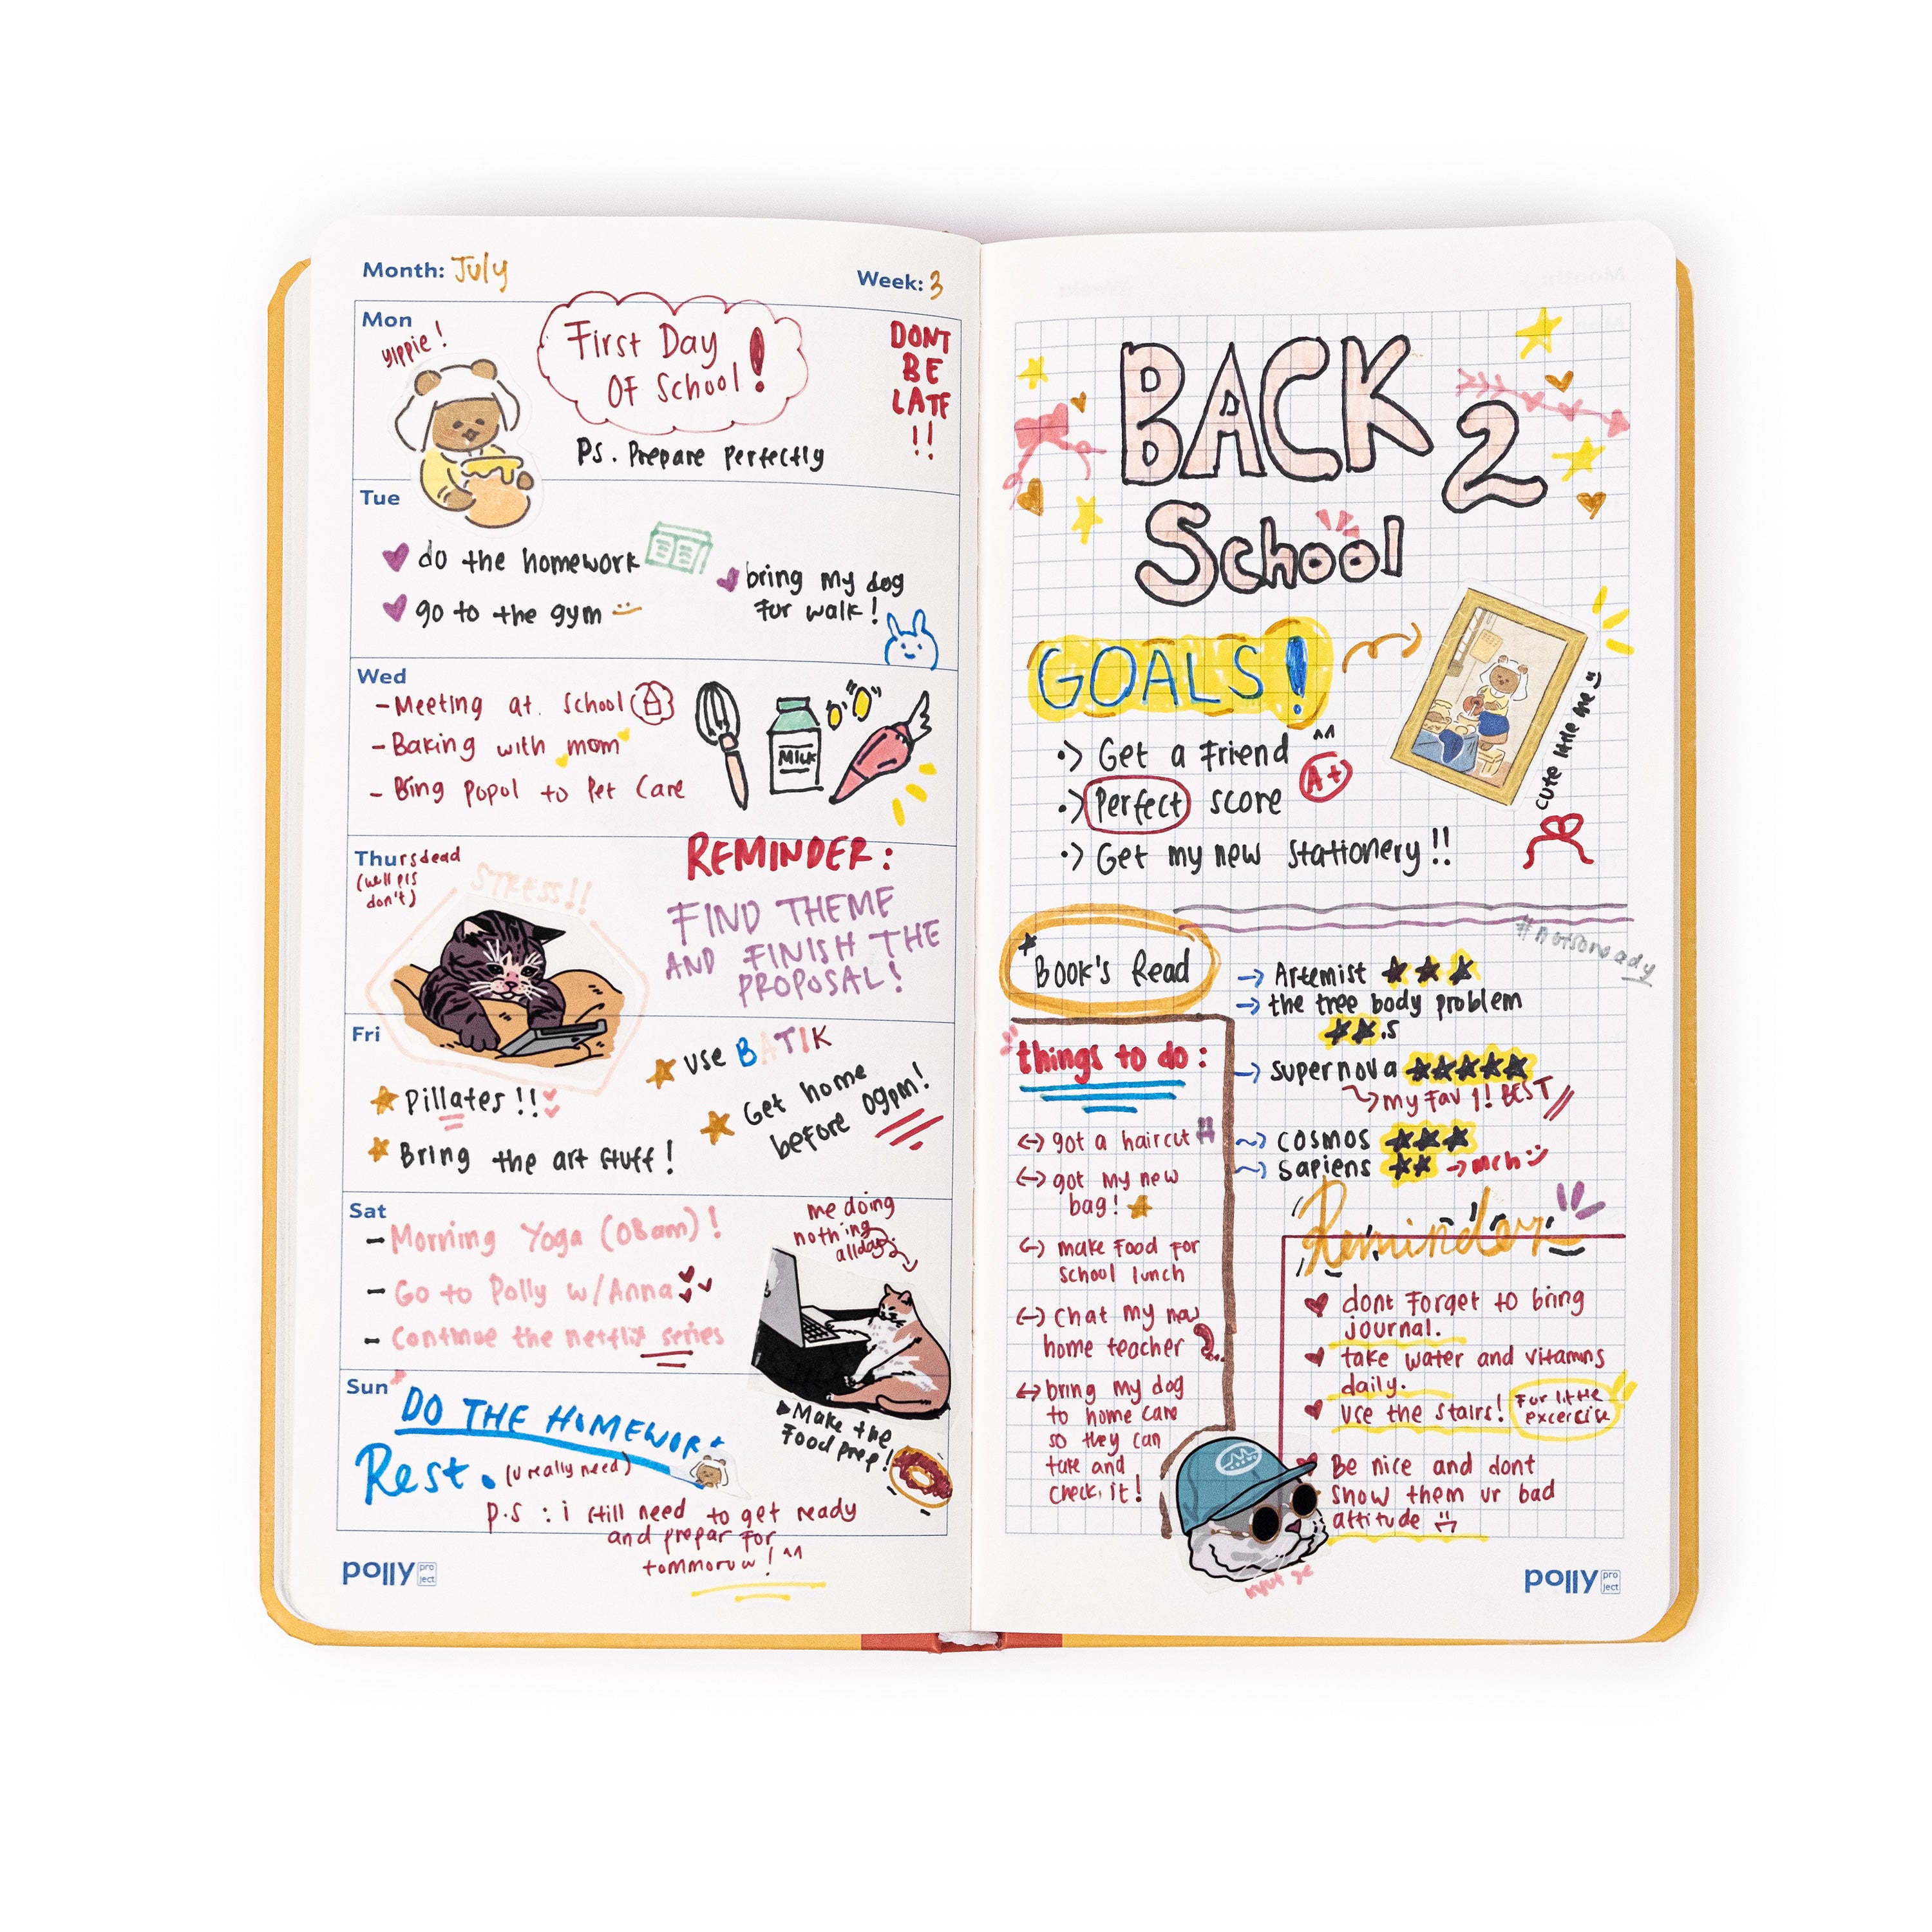 Month: July
Week: 3
Mon
yippie!
First Day
OF School!
Ps. Prepare Perfectly
DONT
BE
LATE
!!
Tue
do the homework
go to the gym
bring my dog
for walk!
Wed
- Meeting at School
- Baking with mom
- Bing Popol to Pet Care
Milk
Thursdead
(well pls
don't)
STRESS!!
REMINDER:
FIND THEME
AND FINISH THE
PROPOSAL!
Fri
Pillates!!
Bring the art stuff!
use BATIK
Get home
before 09pm!
Sat
- Morning Yoga (08am)!
- Go to Polly w/Anna
- Continue the netflix series
me doing
nothing
allday
Sun
DO THE HOMEWORK
Rest. (u really need)
Make the
Food prep!
P.S : i still need to get ready
and prepar for
tommoruw! ^^
polly project
BACK 2
School
GOALS!
Get a Friend ^^
Perfect score A+
Get my new Stationery!!
cute little me
#notsoready
Book's Read
Artemist
the tree body problem
.5
supernova
my Fav 1! BEST
cosmos
sapiens → meh
things to do:
got a haircut
got my new
bag!
make food for
school lunch
chat my new
home teacher
bring my dog
to home care
so they can
take and
check it!
Reminder
dont Forget to bring
journal.
take water and vitamins
daily.
use the stairs! For little
excercise
Be nice and dont
show them ur bad
attitude
polly project